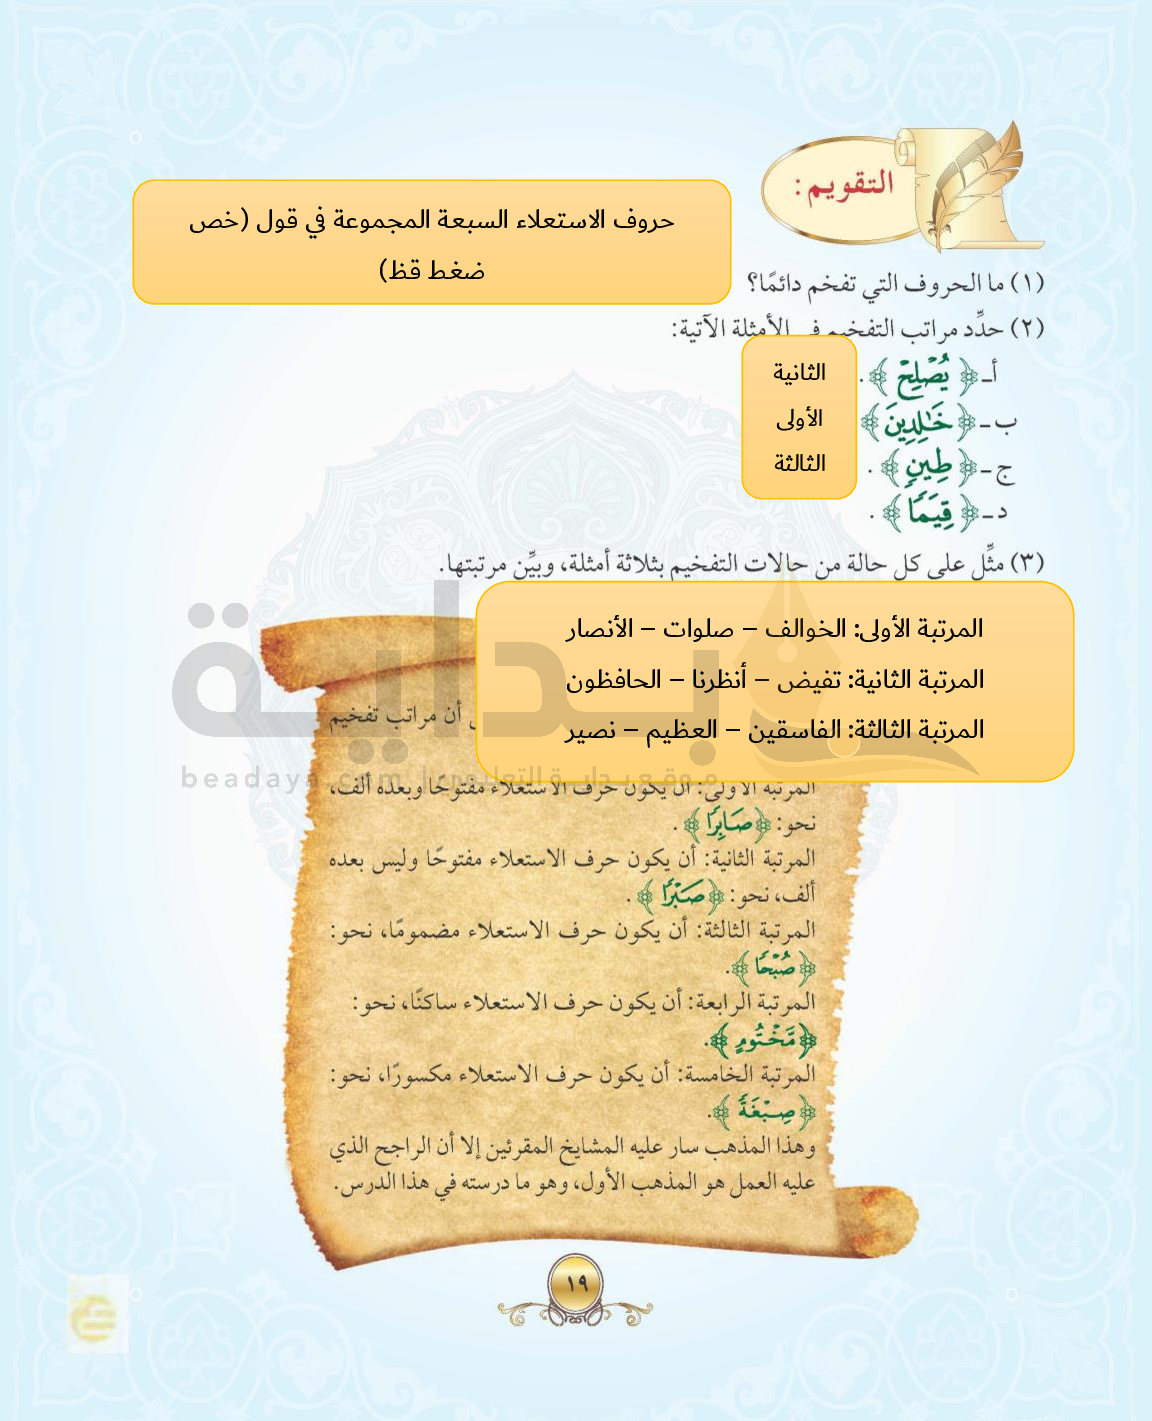 التقويم:
حروف الاستعلاء السبعة المجموعة في قول (خص
ضغط قظ)
(١) ما الحروف التي تفخم دائمًا؟
(٢) حدِّد مراتب التفخيم في الأمثلة الآتية:
أ- ﴿يُصْلِحْ﴾.
الثانية
ب- ﴿خَٰلِدِينَ﴾
الأولى
ج- ﴿طِينٖ﴾.
الثالثة
د- ﴿قِيَمٗا﴾.
(٣) مثِّل على كل حالة من حالات التفخيم بثلاثة أمثلة، وبيِّن مرتبتها.
المرتبة الأولى: الخوالف – صلوات – الأنصار
المرتبة الثانية: تفيض – أنظرنا – الحافظون
المرتبة الثالثة: الفاسقين – العظيم – نصير
بداية
أن مراتب تفخيم
beadaya.com | موقع بداية التعليمي
المرتبة الأولى: أن يكون حرف الاستعلاء مفتوحًا وبعده ألف،
نحو: ﴿صَابِرٗا﴾.
المرتبة الثانية: أن يكون حرف الاستعلاء مفتوحًا وليس بعده
ألف، نحو: ﴿صَبْرٗا﴾.
المرتبة الثالثة: أن يكون حرف الاستعلاء مضمومًا، نحو:
﴿صُبْحٗا﴾.
المرتبة الرابعة: أن يكون حرف الاستعلاء ساكنًا، نحو:
﴿مَّخْتُومٍ﴾.
المرتبة الخامسة: أن يكون حرف الاستعلاء مكسورًا، نحو:
﴿صِبْغَةٗ﴾.
وهذا المذهب سار عليه المشايخ المقرئين إلا أن الراجح الذي
عليه العمل هو المذهب الأول، وهو ما درسته في هذا الدرس.
١٩